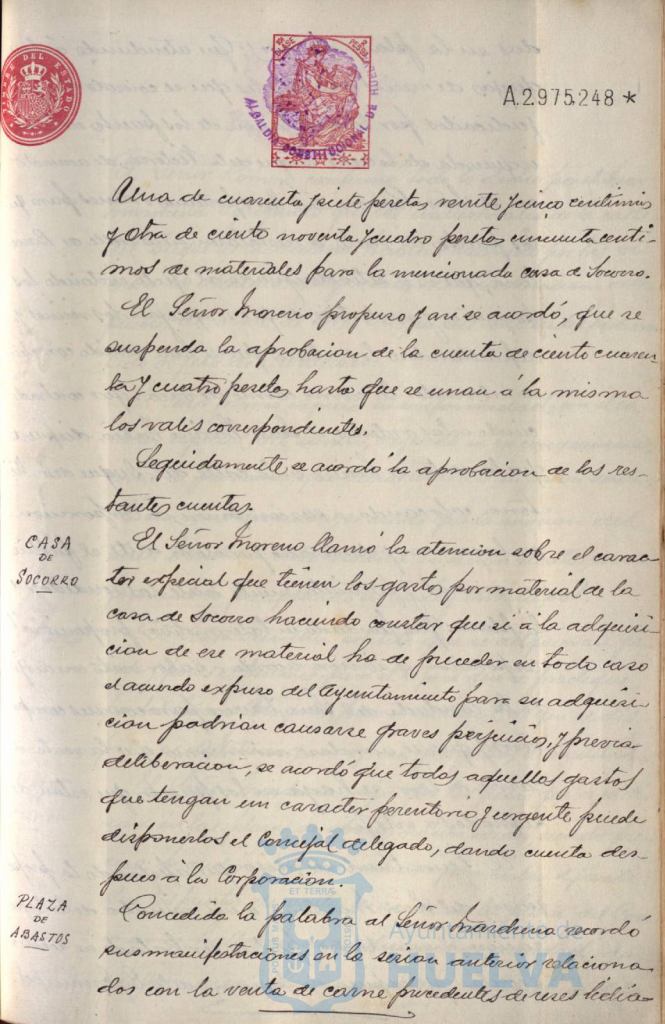 TIMBRE DEL ESTADO
10ª CLASE
2 PESETAS
ALCALDIA CONSTITUCIONAL DE HUELVA
A.2.975.248 *
Una de cuarenta y siete pesetas veinte y cinco centimos
y otra de ciento noventa y cuatro pesetas cincuenta centi-
mos de materiales para la mencionada casa de Socorro.
El Señor Moreno propuso y asi se acordó, que se
suspenda la aprobacion de la cuenta de ciento cuaren-
ta y cuatro pesetas hasta que se unan á la misma
los vales correspondientes.
Seguidamente se acordó la aprobacion de las res-
tantes cuentas.
CASA
DE
SOCORRO
El Señor Moreno llamó la atencion sobre el carac-
ter especial que tienen los gastos por material de la
casa de Socorro haciendo constar que si á la adquisi-
cion de ese material ha de preceder en todo caso
el acuerdo expuso del Ayuntamiento para su adquisi-
cion podrian causarse graves perjuicios, y previa
deliberacion, se acordó que todos aquellos gastos
que tengan un caracter perentorio y urgente puede
disponerlos el Concejal delegado, dando cuenta des-
pues á la Corporacion.
PLAZA
DE
ABASTOS
Concedida la palabra al Señor Marchena recordó
sus manifestaciones en la sesion anterior relaciona-
das con la venta de carne procedentes de reses lidia-
Ayuntamiento de
HUELVA